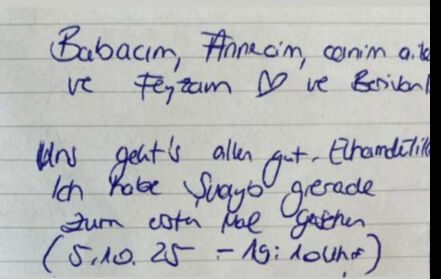 Babacım, Annecim, canim aile
ve Feyzam ♡ ve Berivan
Uns geht's allen gut. Elhamdülill
Ich habe Şuayb gerade
zum ersten Mal gesehen
(5.10.25 - 19:10Uhr)